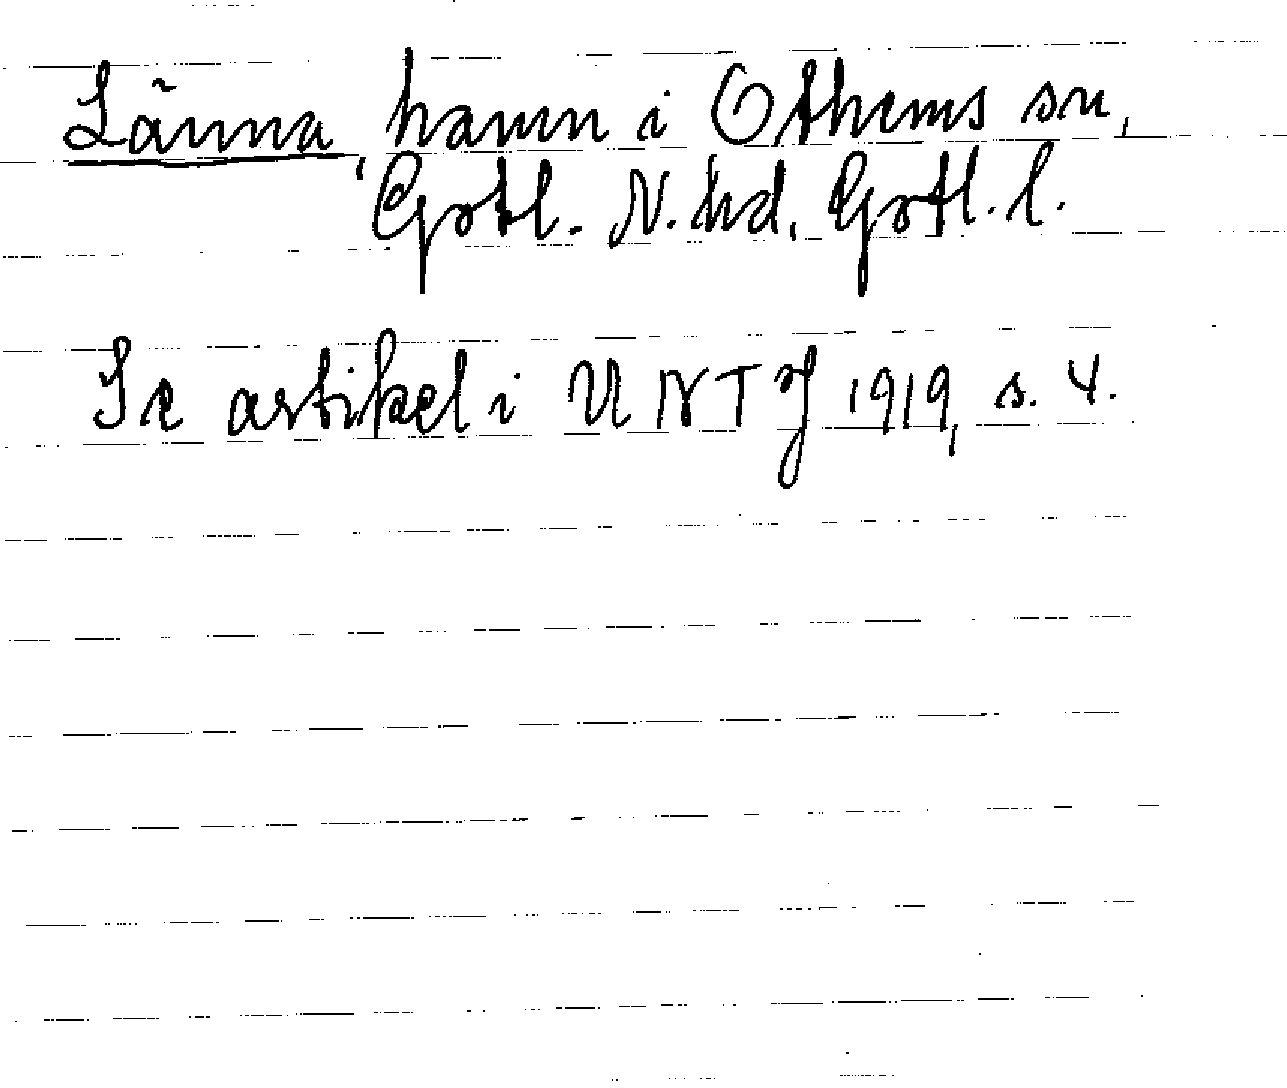 Länna, hamn i Othems sn,
Gotl. N. hd, Gotl. l.
Se artikel i UNT 7/8 1919, s. 4.